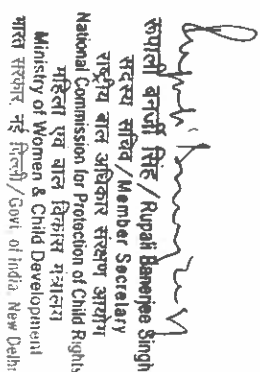 रूपाली बनर्जी सिंह / Rupali Banerjee Singh
सदस्य सचिव / Member Secretary
राष्ट्रीय बाल अधिकार संरक्षण आयोग
National Commission for Protection of Child Rights
महिला एवं बाल विकास मंत्रालय
Ministry of Women & Child Development
भारत सरकार, नई दिल्ली / Govt. of India, New Delhi